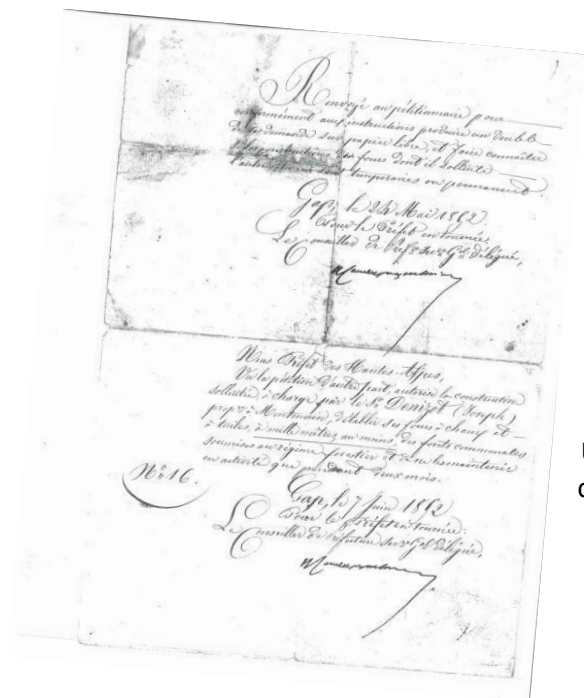 Renvoyé au pétitionnaire pour
conformément aux instructions produire un double
de sa demande sur papier libre, et faire connaître
si les constructions des fours dont il sollicite
l'autorisation sont temporaires ou permanent
Gap, le 24 Mai 1862
Pour le Préfet en tournée,
Le Conseiller de Préfre Secre Gal délégué,
Nous Préfet des Hautes-Alpes,
Vu la pétition d'autre part, autorise la construction
sollicitée à charge par le Sr Denizot (Joseph)
propre à Montmain, d'établir ses fours à chaux et
à tuiles, à mille mètres, au moins, des forêts communales
soumises au régime forestier et à ne les maintenir
en activité que pendant deux mois.
No 16.
Gap, le 7 Juin 1862
Pour le préfet en tournée:
Le Conseiller de préfecture Secre Gal délégué,